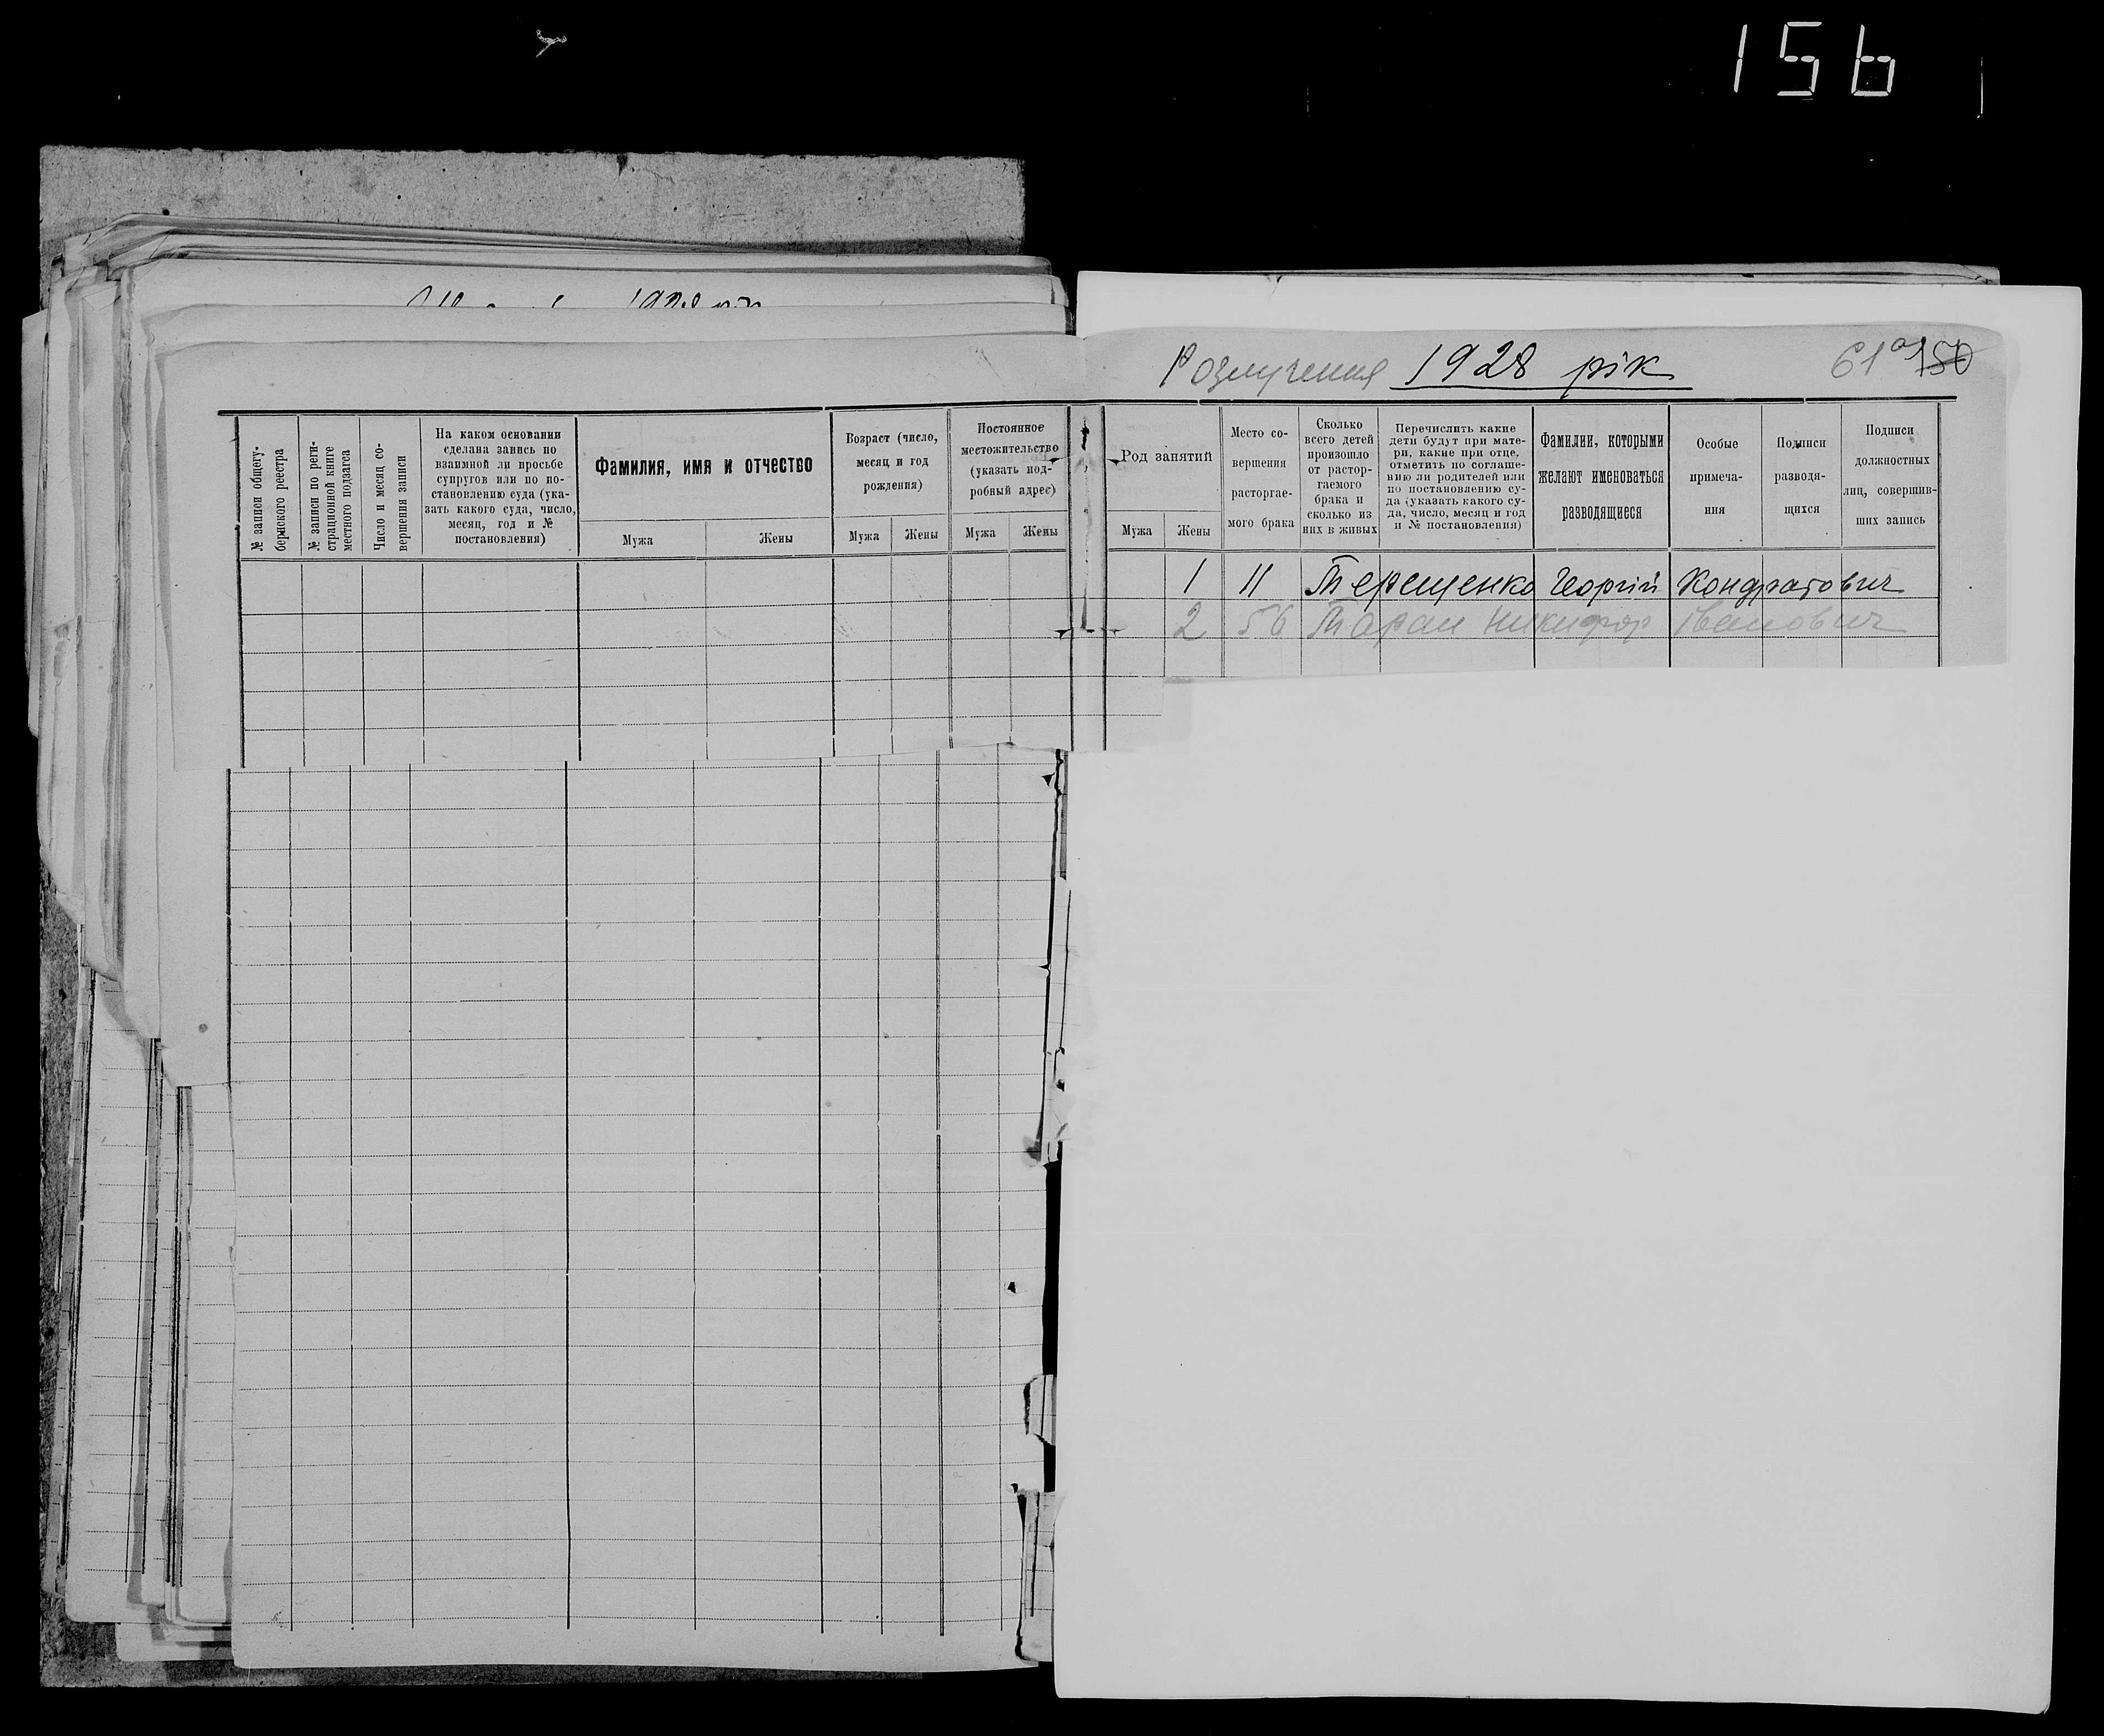 156
1928 рік
Розлучення 1928 рік 61а 150
№ записи общегу-
бернского реестра
№ записи по реги-
страционной книге
местного подзагса
Число и месяц со-
вершения записи
На каком основании
сделана запись по
взаимной ли просьбе
супругов или по по-
становлению суда (ука-
зать какого суда, число,
месяц, год и №
постановления)
Фамилия, имя и отчество
Мужа Жены
Возраст (число,
месяц и год
рождения)
Мужа Жены
Постоянное
местожительство
(указать под-
робный адрес)
Мужа Жены
Род занятий
Мужа Жены
Место со-
вершения
расторгае-
мого брака
Сколько
всего детей
произошло
от растор-
гаемого
брака и
сколько из
них в живых
Перечислить какие
дети будут при мате-
ри, какие при отце,
отметить по соглаше-
нию ли родителей или
по постановлению су-
да (указать какого су-
да, число, месяц и год
и № постановления)
Фамилии, которыми
желают именоваться
разводящиеся
Особые
примеча-
ния
Подписи
разводя-
щихся
Подписи
должностных
лиц, совершив-
ших запись
1 11 Терещенко Георгій Кондратович
2 56 Таран Никифор Іванович